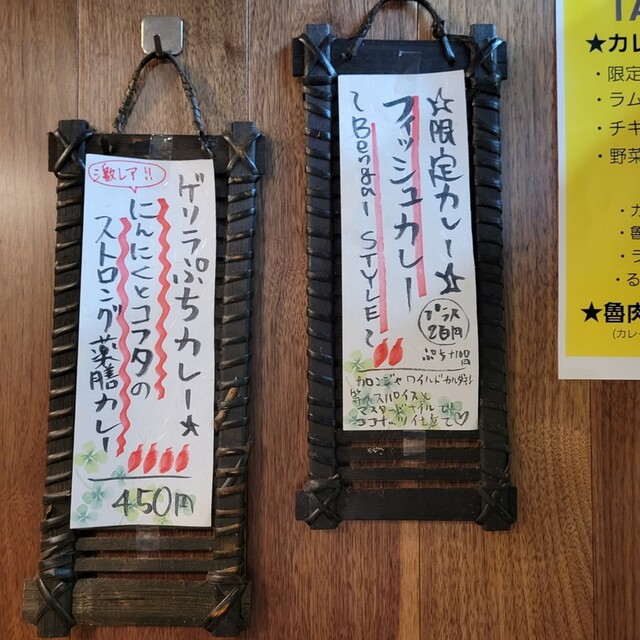 激レア!!
ゲリラぷちカレー★
にんにくとコフタの
ストロング薬膳カレー
450円
☆限定カレー☆
フィッシュカレー
~Bengal STYLE~
プラス
20円
ぷち110円
カロンジャ
マスタードオイル
ココナッツ仕立て♡
★カレ
・限定
・ラム
・チキ
・野菜
・カ
・魯
・ラ
・る
★魯肉
(カレー